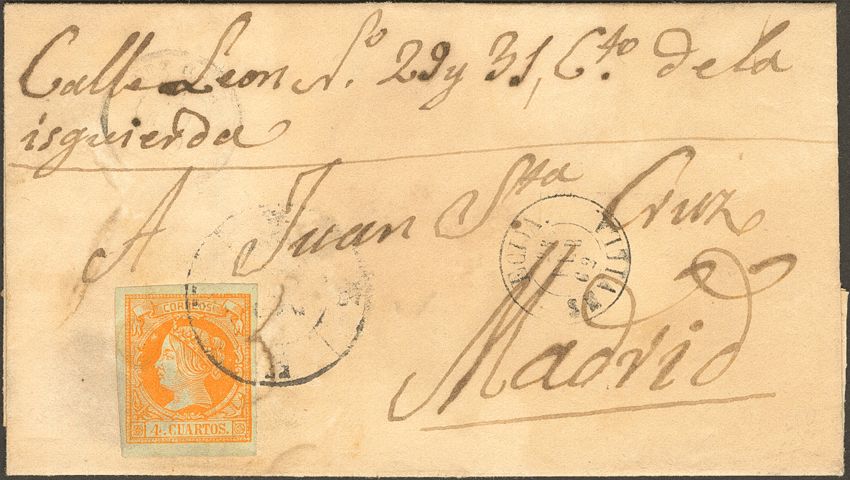 Calle Leon N.º 29 y 31, C.to de la
isguierda
A Juan Sta Cruz
Madrid
CORREOS
4 CUARTOS.